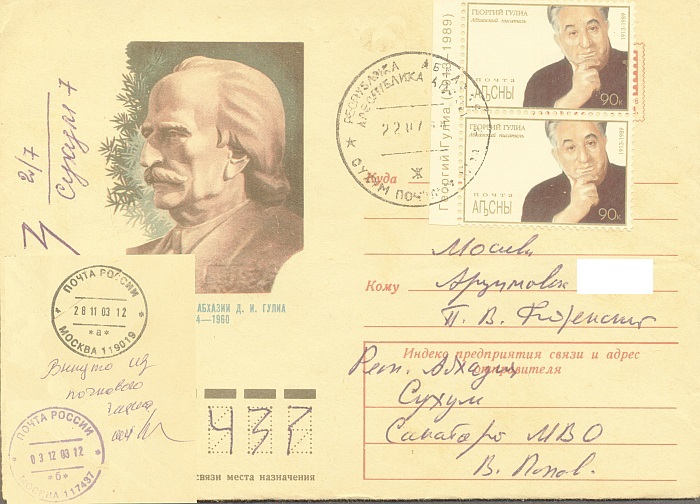 21/7
Сухум 7
АБХАЗИИ Д. И. ГУЛИА
4—1960
ГЕОРГИЙ ГУЛИА
Абхазский писатель
1913-1989
ПОЧТА
АԤСНЫ
90к
ГЕОРГИЙ ГУЛИА
Абхазский писатель
1913-1989
ПОЧТА
АԤСНЫ
90к
Георгий Гулиа (1913-1989)
Георгий Гулиа
РЕСПУБЛИКА
СУХУМ ПОЧ
22 07
Куда
Москва
Кому
П. В.
Индекс предприятия связи и адрес
отправителя
Респ. Абхазия
Сухум
Санаторо МВО
В. Попов.
ПОЧТА РОССИИ
28 11 03 12
*а*
МОСКВА 119019
Вынуто из
почтового
ящика
ПОЧТА РОССИИ
03 12 03 12
*б*
МОСКВА 117437
437
связи места назначения